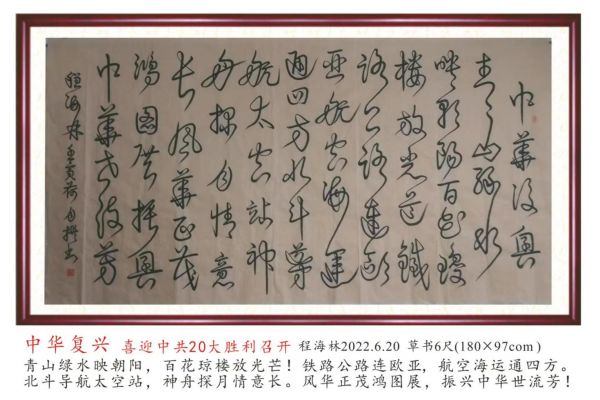 中華复興
青山绿水
映朝阳百花琼
楼放光芒铁
路公路连欧
亚航空海运
通四方北斗导
航太空站神
舟探月情意
长风華正茂
鸿图展振興
中華世流芳
程海林壬寅荷月撰书
中华复兴 喜迎中共20大胜利召开 程海林2022.6.20 草书6尺(180×97com)
青山绿水映朝阳，百花琼楼放光芒！铁路公路连欧亚，航空海运通四方。
北斗导航太空站，神舟探月情意长。风华正茂鸿图展，振兴中华世流芳！